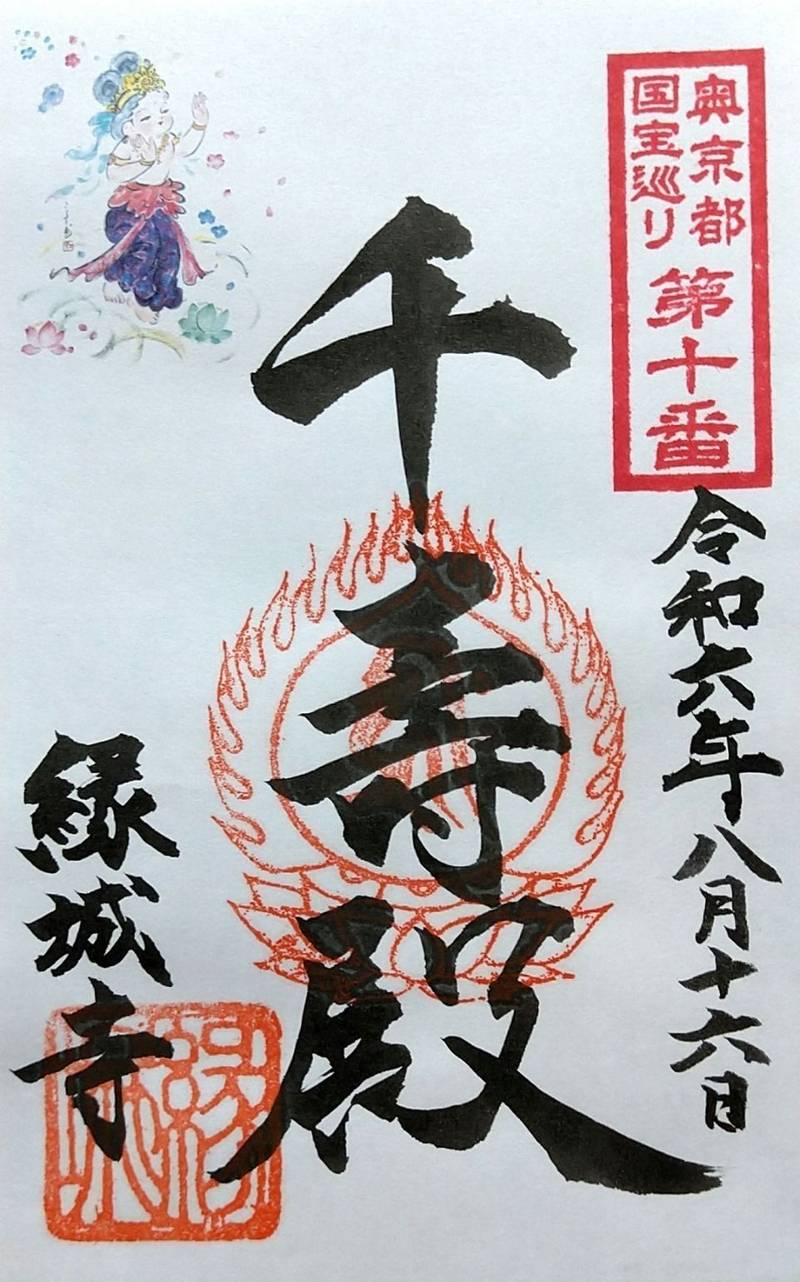 奥京都
国宝巡り
第十番
令和六年八月十六日
千寿殿
縁城寺